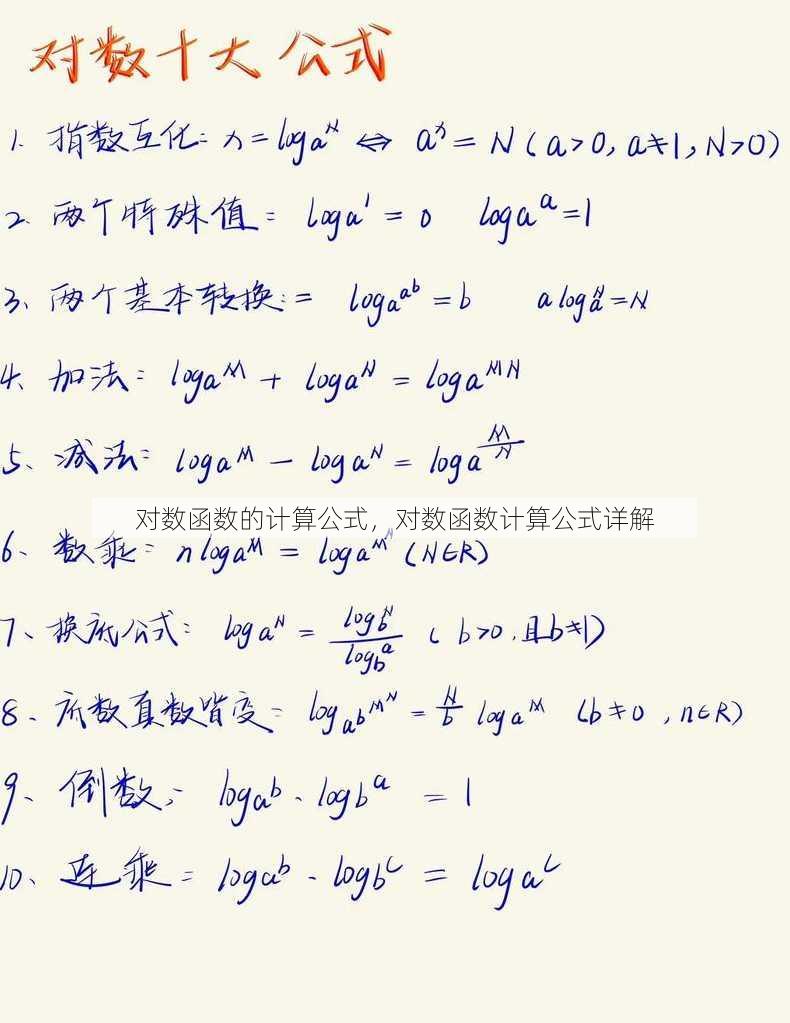 对数十大公式
1. 指数互化: x = logₐᴺ ⇔ aˣ = N (a>0, a≠1, N>0)
2. 两个特殊值: logₐ¹ = 0 logₐᵃ = 1
3、两个基本转换: = logₐaᵇ = b a logₐᴺ = N
4、加法: logₐᴹ + logₐᴺ = logₐᴹᴺ
5、减法: logₐᴹ - logₐᴺ = logₐ^(M/N)
对数函数的计算公式，对数函数计算公式详解
6、数乘: n logₐᴹ = logₐM^N (N∈R)
7、换底公式: logₐᴺ = log_b^N / log_b^a ( b>0, 且b≠1)
8、底数真数皆变: log_{a^b} M^N = N/b logₐᴹ (b≠0, n∈R)
9、倒数: logₐᵇ · log_b^a = 1
10、连乘: logₐᵇ · log_b^c = logₐ^c